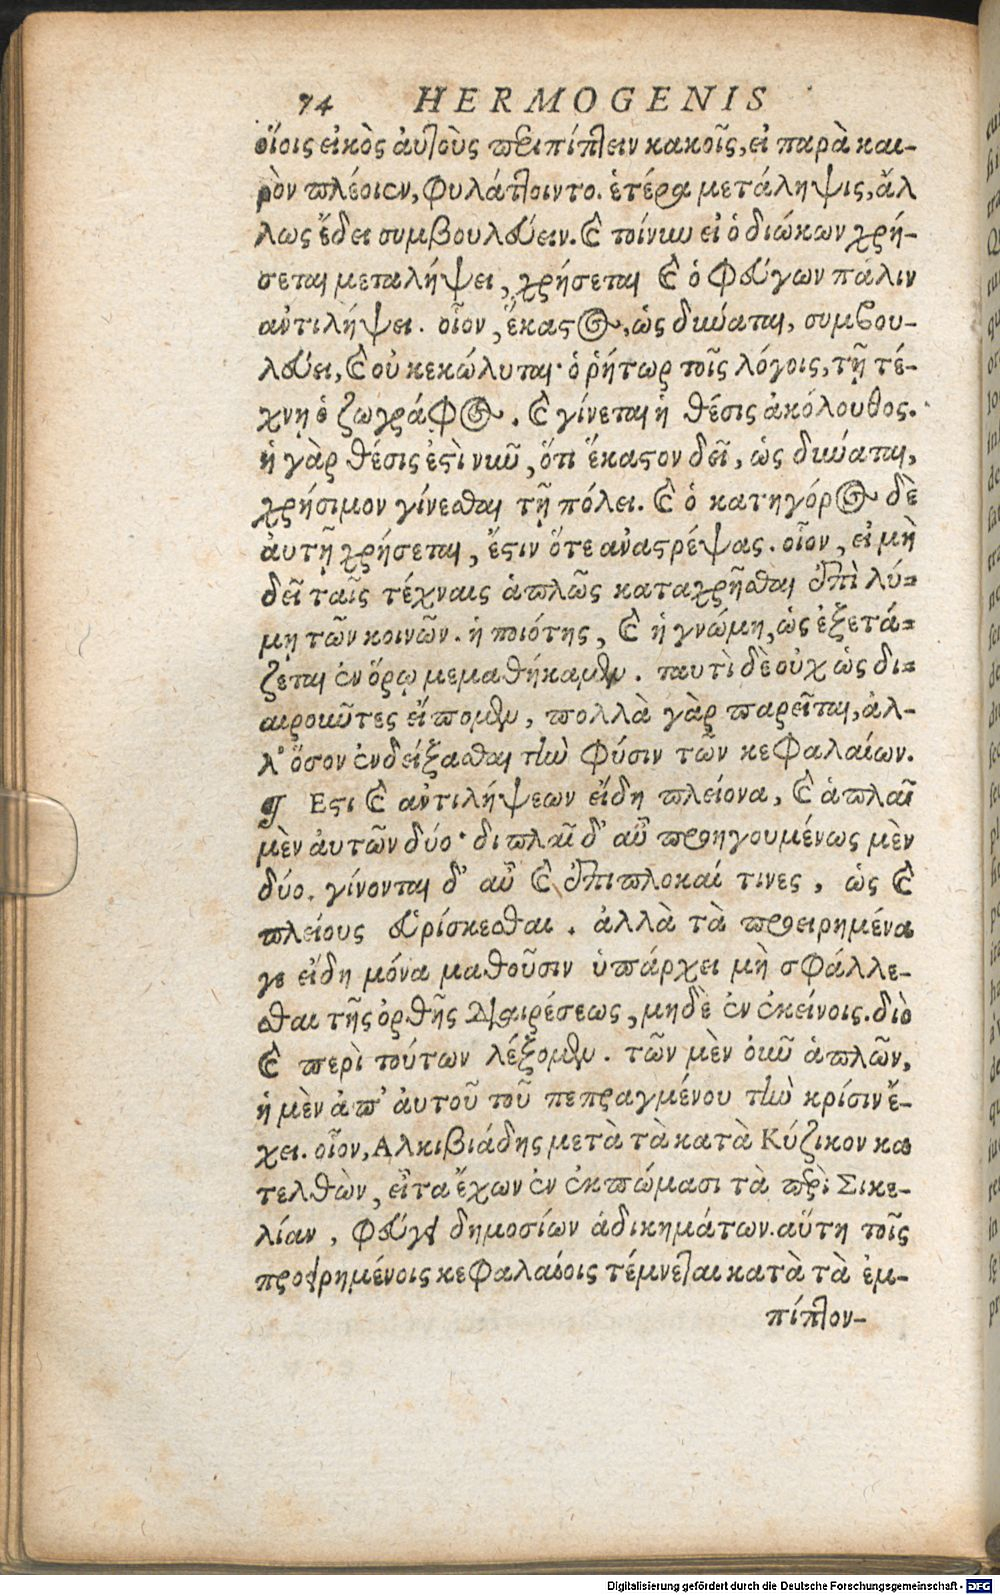 74 HERMOGENIS
οἵοις εἰκὸς αὐτοὺς περιπίπτειν κακοῖς, εἰ παρὰ και-
ρὸν πλέοιεν, φυλάττοιντο. ἑτέρα μετάληψις, ἄλ
λως ἔδει συμβουλεύειν. καὶ τοίνυν εἰ ὁ διώκων χρή-
σεται μεταλήψει, χρήσεται καὶ ὁ φεύγων πάλιν
ἀντιλήψει. οἷον, ἕκαστος, ὡς δύναται, συμβου-
λεύει, καὶ οὐ κεκώλυται· ὁ ῥήτωρ τοῖς λόγοις, τῇ τέ-
χνῃ ὁ ζωγράφος. καὶ γίνεται ἡ θέσις ἀκόλουθος.
ἡ γὰρ θέσις ἐστὶ νῦν, ὅτι ἕκαστον δεῖ, ὡς δύναται,
χρήσιμον γίνεσθαι τῇ πόλει. καὶ ὁ κατηγόρος δὲ
αὐτῇ χρήσεται, ἔστιν ὅτε ἀναστρέψας. οἷον, εἰ μὴ
δεῖ ταῖς τέχναις ἁπλῶς καταχρῆσθαι ἐπὶ λύ-
μῃ τῶν κοινῶν. ἡ ποιότης, καὶ ἡ γνώμη, ὡς ἐξετά-
ζεται ἐν ὅρῳ μεμαθήκαμεν. ταυτὶ δὲ οὐχ ὡς δι-
αιροῦντες εἴπομεν, πολλὰ γὰρ παρεῖται, ἀλ-
λ' ὅσον ἐνδείξασθαι τὴν φύσιν τῶν κεφαλαίων.
¶ Εστι καὶ ἀντιλήψεων εἴδη πλείονα, καὶ ἁπλαῖ
μὲν αὐτῶν δύο· διπλαῖ δ' αὖ προηγουμένως μὲν
δύο. γίνονται δ' αὖ καὶ ἐπιπλοκαί τινες, ὡς καὶ
πλείους εὑρίσκεσθαι. ἀλλὰ τὰ προειρημένα
γε εἴδη μόνα μαθοῦσιν ὑπάρχει μὴ σφάλλε-
σθαι τῆς ὀρθῆς διαιρέσεως, μηδὲ ἐν ἐκείνοις. διὸ
καὶ περὶ τούτων λέξομεν. τῶν μὲν οὖν ἁπλῶν,
ἡ μὲν ἀπ' αὐτοῦ τοῦ πεπραγμένου τὴν κρίσιν ἔ-
χει. οἷον, Αλκιβιάδης μετὰ τὰ κατὰ Κύζικον κα
τελθὼν, εἶτα ἔχων ἐν ἐκπώμασι τὰ περὶ Σικε-
λίαν, φεύγει δημοσίων ἀδικημάτων. αὕτη τοῖς
προειρημένοις κεφαλαίοις τέμνεται κατὰ τὰ ἐμ-
πίπτον-
Digitalisierung gefördert durch die Deutsche Forschungsgemeinschaft - DFG